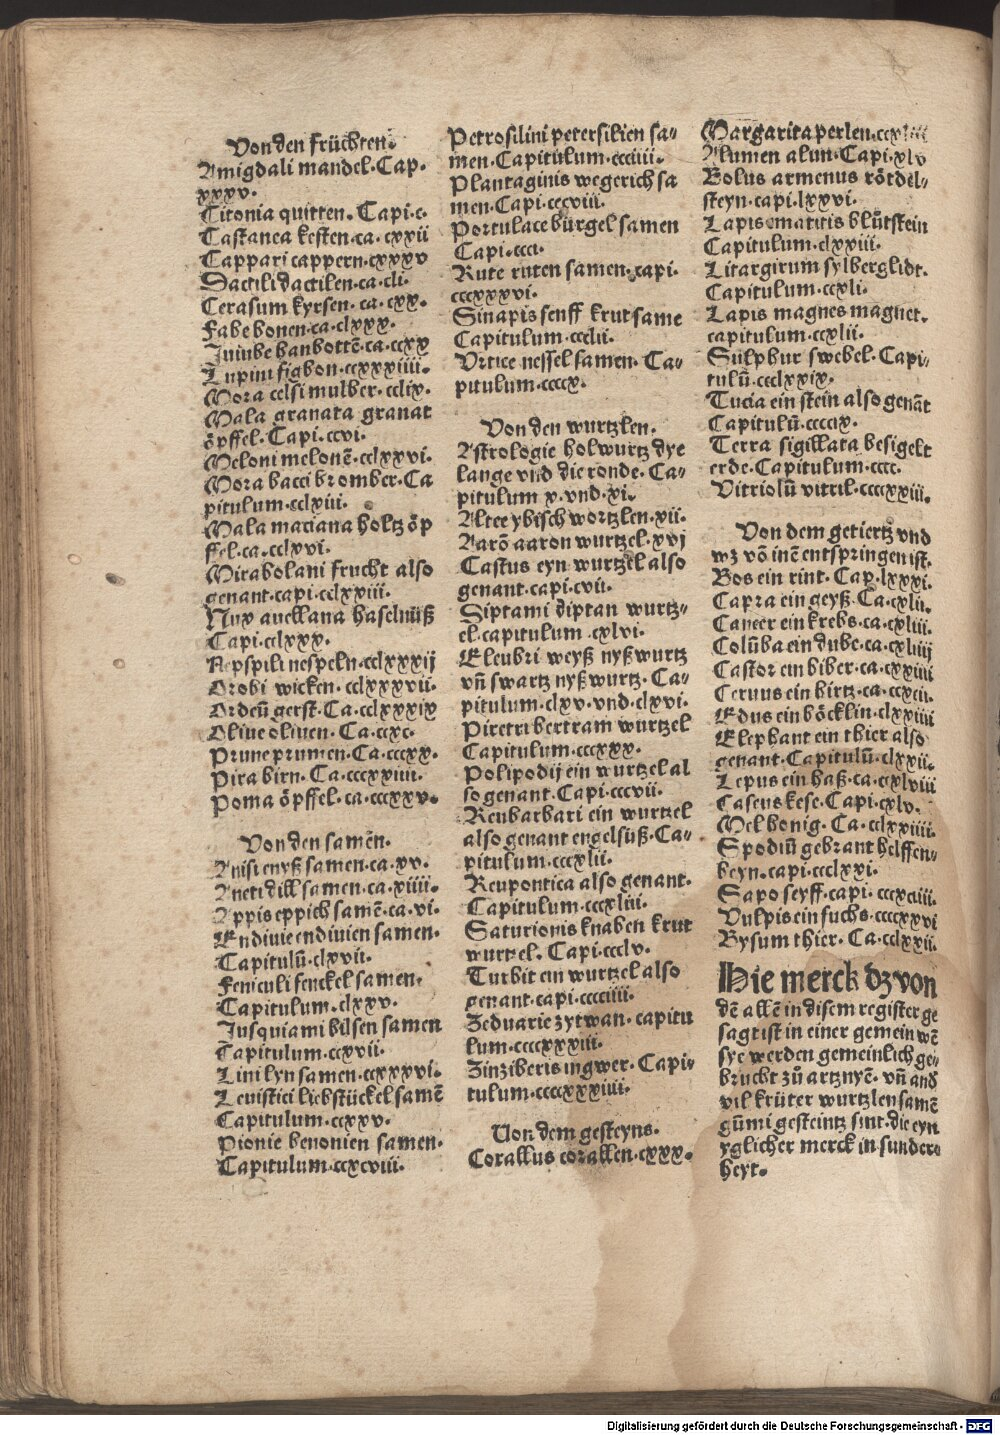 Von den früchten.
Amigdali mandel. Cap.
xxxv.
Citonia quitten. Capi. c.
Castanea kesten. ca. cxxii
Cappari cappern. cxxxv
Dactili dactilen. ca. cli.
Cerasum kyrsen. ca. cxx.
Fabe bonen. ca. clxxx.
Juiube hanbottē. ca. ccxx
Lupini figbon. ccxxxiiii.
Mora celsi mulber. cclix.
Mala granata granat
öpffel. Capi. ccvi.
Meloni melonē. cclxxvi.
Mora bacci bromber. Ca
pitulum. cclxiii.
Mala maciana holtz öp
ffel. ca. cclxvi.
Mirabolani frucht also
genant. capi. cclxxiii.
Nux auellana haselnüß
Capi. cclxxx.
Nepspili nespeln. cclxxxij
Orobi wicken. cclxxxvii.
Ordeū gerst. Ca. cclxxxix
Oliue oliuen. Ca. ccxc.
Prune prumen. Ca. cccxx.
Pira birn. Ca. cccxxiiii.
Poma öpffel. ca. cccxxv.
Von den samēn.
Anisi enyß samen. ca. xv.
Aneti dill samen. ca. xiiii.
Appis eppich samē. ca. vi.
Endiuie endiuien samen.
Capitulū. clxvii.
Feniculi fenckel samen.
Capitulum. clxxv.
Jusquiami bilsen samen
Capitulum. ccxvii.
Lini lyn samen. ccxxxvi.
Leuistici liebstückel samē
Capitulum. ccxxv.
Pionie benonien samen.
Capitulum. ccxcviii.
Petrosilini petersilien sa-
men. Capitulum. ccciiii.
Plantaginis wegerich sa
men. Capi. cccviii.
Portulace bürgel samen
Capi. ccci.
Rute ruten samen. capi.
cccxxxvi.
Sinapis senff krut same
Capitulum. ccclii.
Vrtice nessel samen. Ca-
pitulum. ccccx.
Von den wurtzlen.
Astrologie holwurtz dye
lange vnd die ronde. Ca-
pitulum x. vnd. xi.
Altee ybisch wortzlen. xii.
Aarō aaron wurtzel. xvj
Castus eyn wurtzel also
genant. capi. cvii.
Diptami diptan wurtz-
el. capitulum. cxlvi.
Eleubri weyß nyßwurtz
vn̄ swartz nyßwurtz. Ca-
pitulum. clxv. vnd. clxvi.
Piretri bertram wurtzel
Capitulum. cccxxx.
Polipodij ein wurtzel al
so genant. Capi. cccvii.
Reubarbari ein wurtzel
also genant engelsüß. Ca-
pitulum. cccxlii.
Reupontica also genant.
Capitulum. cccxliii.
Saturionis knaben krut
wurtzel. Capi. ccclv.
Turbit ein wurtzel also
genant. capi. cccciiii.
Zeduarie zytwan. capitu
lum. ccccxxxiii.
Zinziberis ingwer. Capi-
tulum. ccccxxxiiii.
Von dem gesteyns.
Corallus corallen. cxxx.
Margarita perlen.
Alumen alun. Capi. xlv
Bolus armenus rötdel-
steyn. capi. lxxvi.
Lapis ematitis blütstein
Capitulum. clxxiii.
Litargirum sylberglidt.
Capitulum. ccxli.
Lapis magnes magnet.
capitulum. ccxlii.
Sulphur swebel. Capi-
tulū. ccclxxix.
Tucia ein stein also genāt
Capitulū. ccccix.
Terra sigillata besigelt
erde. Capitulum. cccc.
Vitriolū vitril. ccccxxiii.
Von dem getiertz vnd
wz vō inē entspringen ist.
Bos ein rint. Cap. lxxxi.
Capra ein geyß. Ca. cxlii.
Cancer ein krebs. ca. cxliii.
Colūba ein dube. ca. cxliiij
Castor ein biber. ca. cxxiii
Ceruus ein hirtz. ca. ccxcii.
Edus ein böcklin. clxxiiii
Elephant ein thier also
genant. Capitulū. clxxii.
Lepus ein haß. ca. ccxlviii
Caseus kese. Capi. cxlv.
Mel honig. Ca. cclxxiiii.
Spodiū gebrant helffen-
beyn. capi. ccclxxi.
Sapo seyff. capi. cccxciii.
Vulpis ein fuchs. ccccxxvi
Bysum thier. Ca. cclxxii.
Hie merck dz von
dē allē in disem register ge
sagt ist in einer gemein wē
sye werden gemeinlich ge-
brucht zů artznyē. vn̄ and
vil krüter wurtzlen samē
gūmi gesteintz sint. die eyn
yglicher merck in sunder-
heyt.
Digitalisierung gefördert durch die Deutsche Forschungsgemeinschaft - DFG